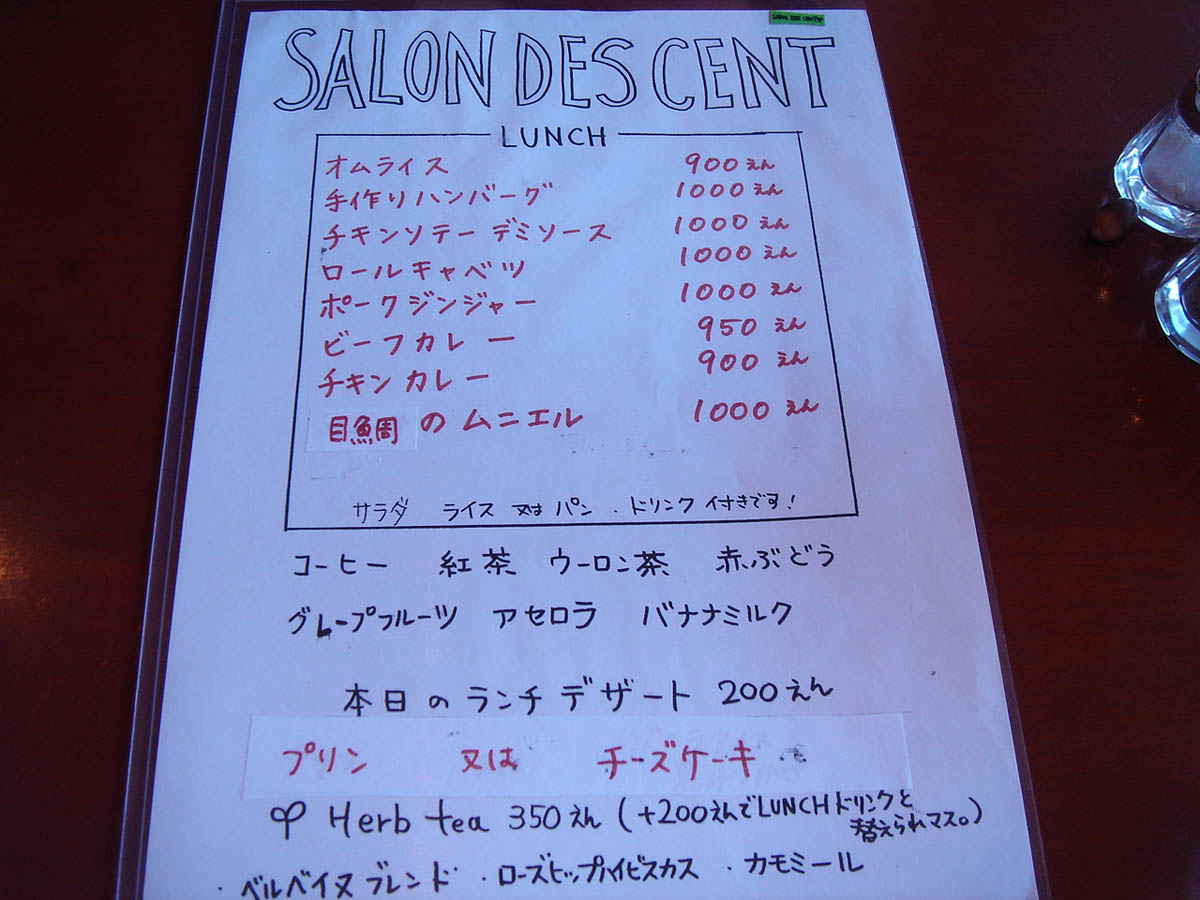 SALON DES CENT
SALON DES CENT
LUNCH
オムライス 900えん
手作りハンバーグ 1000えん
チキンソテー デミソース 1000えん
ロールキャベツ 1000えん
ポークジンジャー 1000えん
ビーフカレー 950えん
チキンカレー 900えん
目鯛のムニエル 1000えん
サラダ ライス 又は パン . ドリンク付きです!
コーヒー 紅茶 ウーロン茶 赤ぶどう
グレープフルーツ アセロラ バナナミルク
本日のランチデザート 200えん
プリン 又は チーズケーキ
Herb tea 350えん (+200えんでLUNCHドリンクと
替えられマス。)
・ベルベイヌブレンド ・ローズヒップハイビスカス ・カモミール